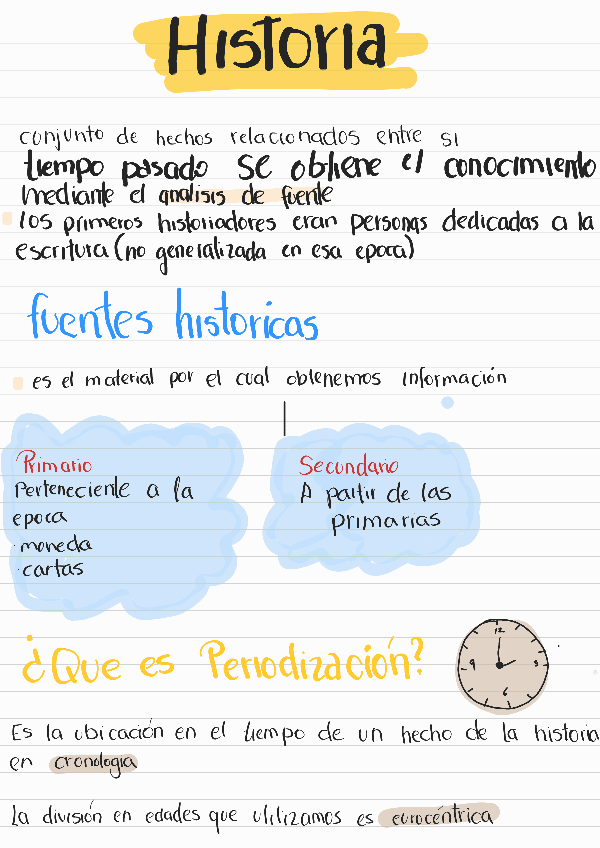 Historia
conjunto de hechos relacionados entre si
tiempo pasado se obtiene el conocimiento
mediante el analisis de fuente
los primeros historiadores eran personas dedicadas a la
escritura (no generalizada en esa epoca)
fuentes historicas
es el material por el cual obtenemos información
Primario
Perteneciente a la
epoca
· moneda
· cartas
Secundario
A partir de las
primarias
¿Que es Periodización?
12
9 3
6
Es la ubicación en el tiempo de un hecho de la historia
en cronologia
La división en edades que utilizamos es eurocéntrica